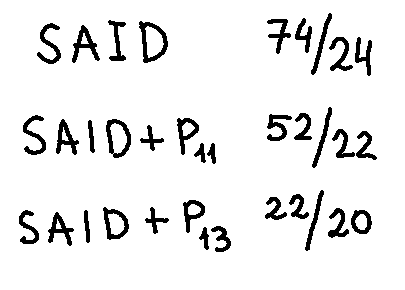 SAID 74/24
SAID + P₁₁ 52/22
SAID + P₁₃ 22/20